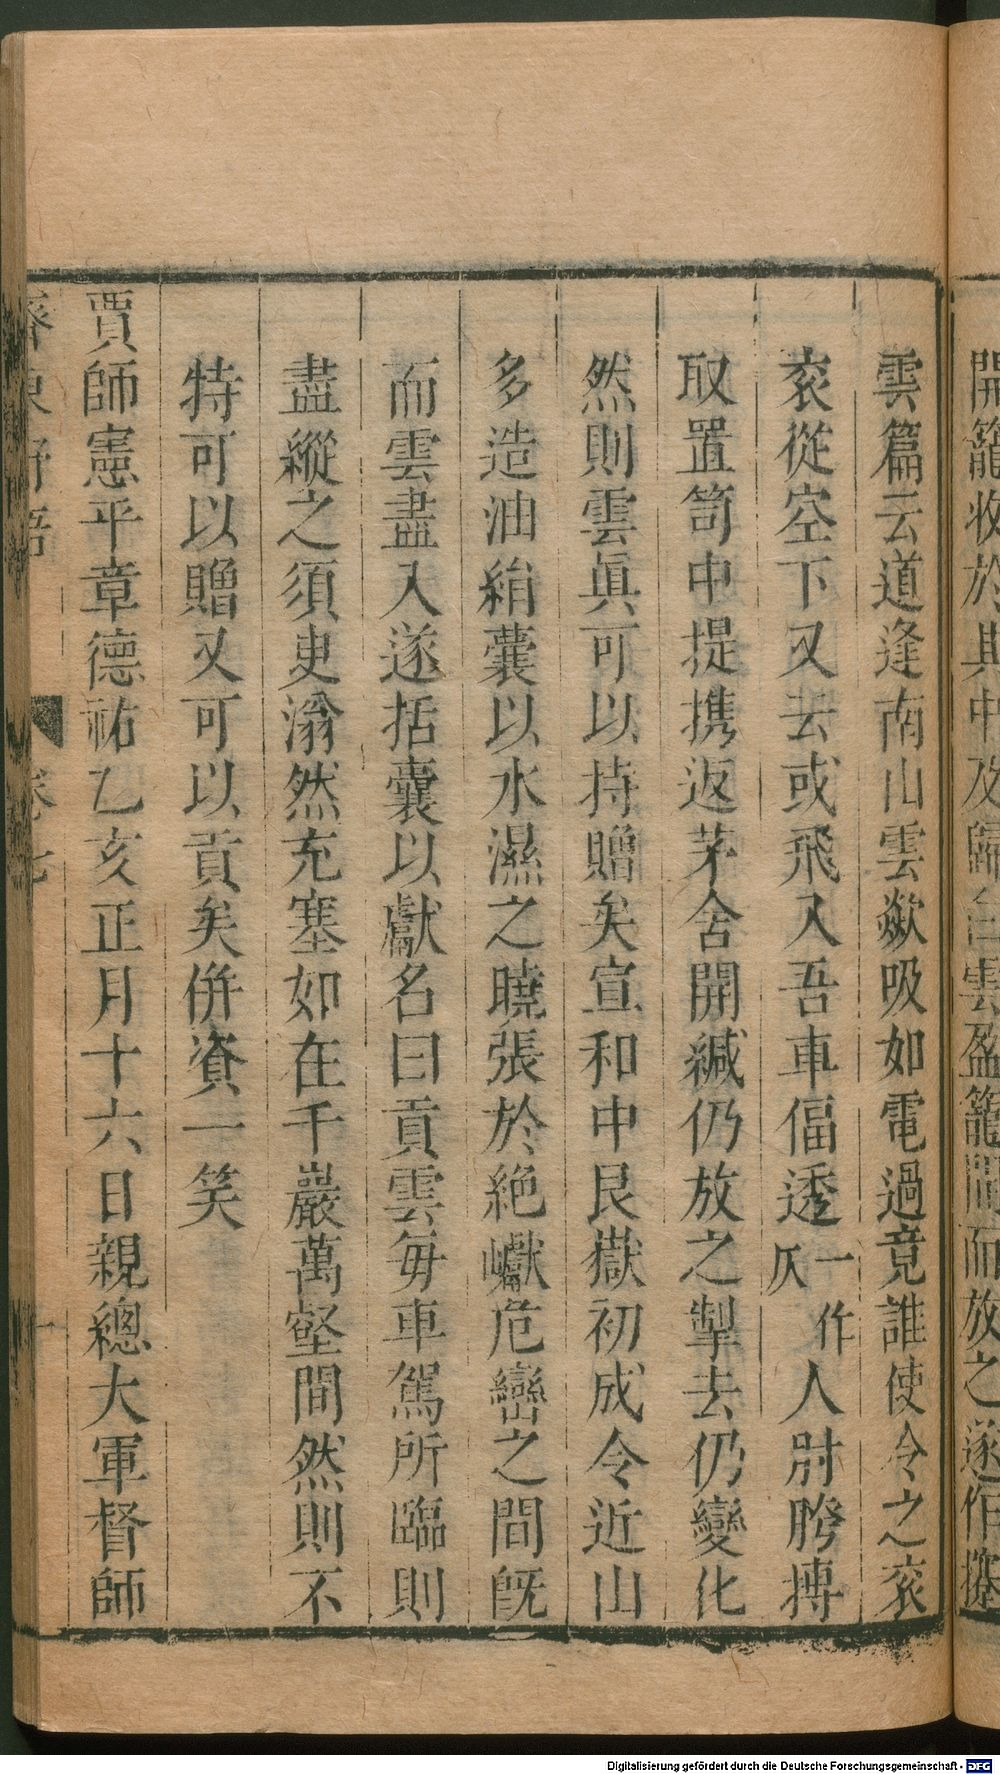 開籠收於其中及歸白雲盈籠開而放之遂作攓
雲篇云道逢南山雲歘吸如電過竟誰使令之衮
衮從空下又云或飛入吾車偪透一作仄人肘胯搏
取置笥中提携返茅舍開緘仍放之掣去仍變化
然則雲眞可以持贈矣宣和中艮嶽初成令近山
多造油絹囊以水濕之曉張於絶巘危巒之間旣
而雲盡入遂括囊以獻名曰貢雲每車駕所臨則
盡縱之須臾滃然充塞如在千巖萬壑間然則不
特可以贈又可以貢矣併資一笑
賈師憲平章德祐乙亥正月十六日親總大軍督師
齊東野語 卷七
Digitalisierung gefördert durch die Deutsche Forschungsgemeinschaft - DFG